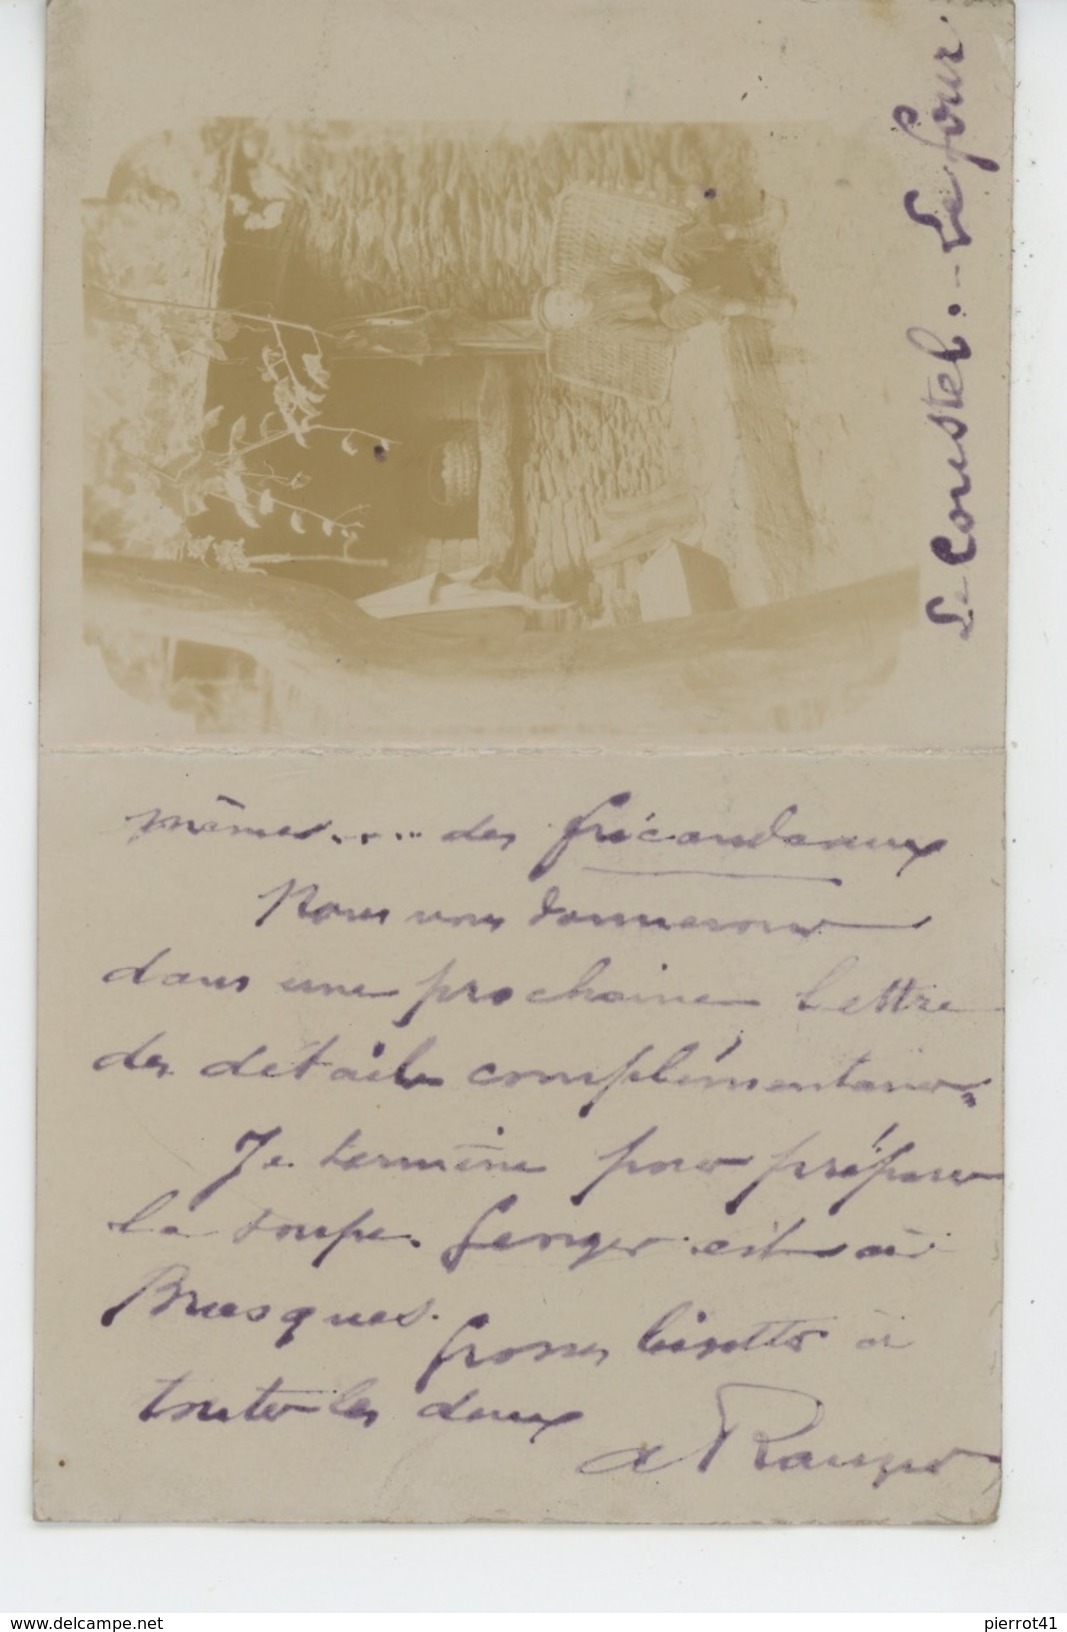 Le Coustel. - Le four
mêmes.... des fricandeaux
Nous vous donnerons
dans une prochaine lettre
des détails complémentaires.
Je termine pour préparer
la soupe. est à
Brusques.
Grosses bisettes à
toutes les deux
www.delcampe.net
pierrot41